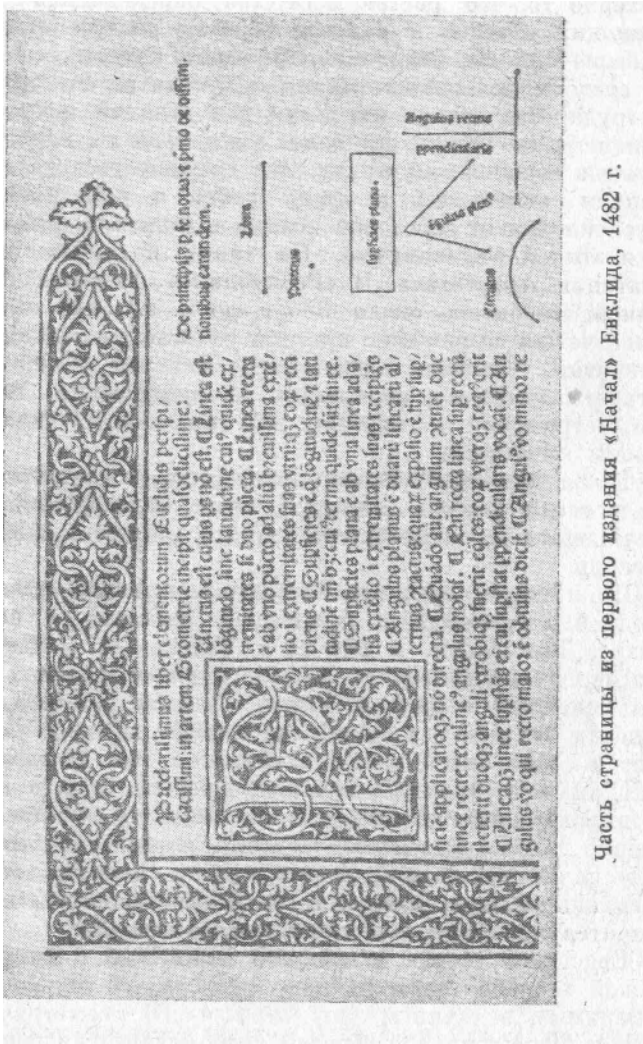 Preclarissimus liber elementorum Euclidis perspi/
cacissimi: in artem Geometrie incipit quafoelicissime:
Punctus est cuius ps nō est. ¶ Linea est
lōgitudo sine latitudine cuiꝰ quidē ex/
tremitates st̄ duo pūcta. ¶ Linea recta
ē ab vno pūcto ad aliū breuissima extē/
sio i extremitates suas vtrūqꝫ eoꝝ reci
piens. ¶ Supficies ē q̄ lōgitudinē ⁊ lati
tudinē tm̄ hꝫ: cuiꝰ termi quidē sūt linee.
¶ Supficies plana ē ab vna linea ad a/
liā extēsio i extremitates suas recipiēs
¶ Angulus planus ē duarū linearū al/
ternus ꝯtactus: quaꝝ expāsio ē sup sup/
ficiē applicatioqꝫ nō directa. ¶ Quādo aūt angulum ꝯtinēt due
linee recte rectilineꝰ angulus noīat. ¶ Qn̄ recta linea sup rectā
steterit duoqꝫ anguli vtrobiqꝫ fuerit eq̄les: eoꝝ vterqꝫ rectꝰ erit
¶ Lineaqꝫ linee supstās ei cui supstat ppendicularis vocat. ¶ An
gulus vo qui recto maior ē obtusus dicit. ¶ Angulꝰ vo minor re
De principijs p se notis: ⁊ pmo de diffini/
tionibus earundem.
Linea
Punctus
supficies plana.
Angulus rectus
ppendicularis
āgulus planꝰ
Circulus
Часть страницы из первого издания «Начал» Евклида, 1482 г.